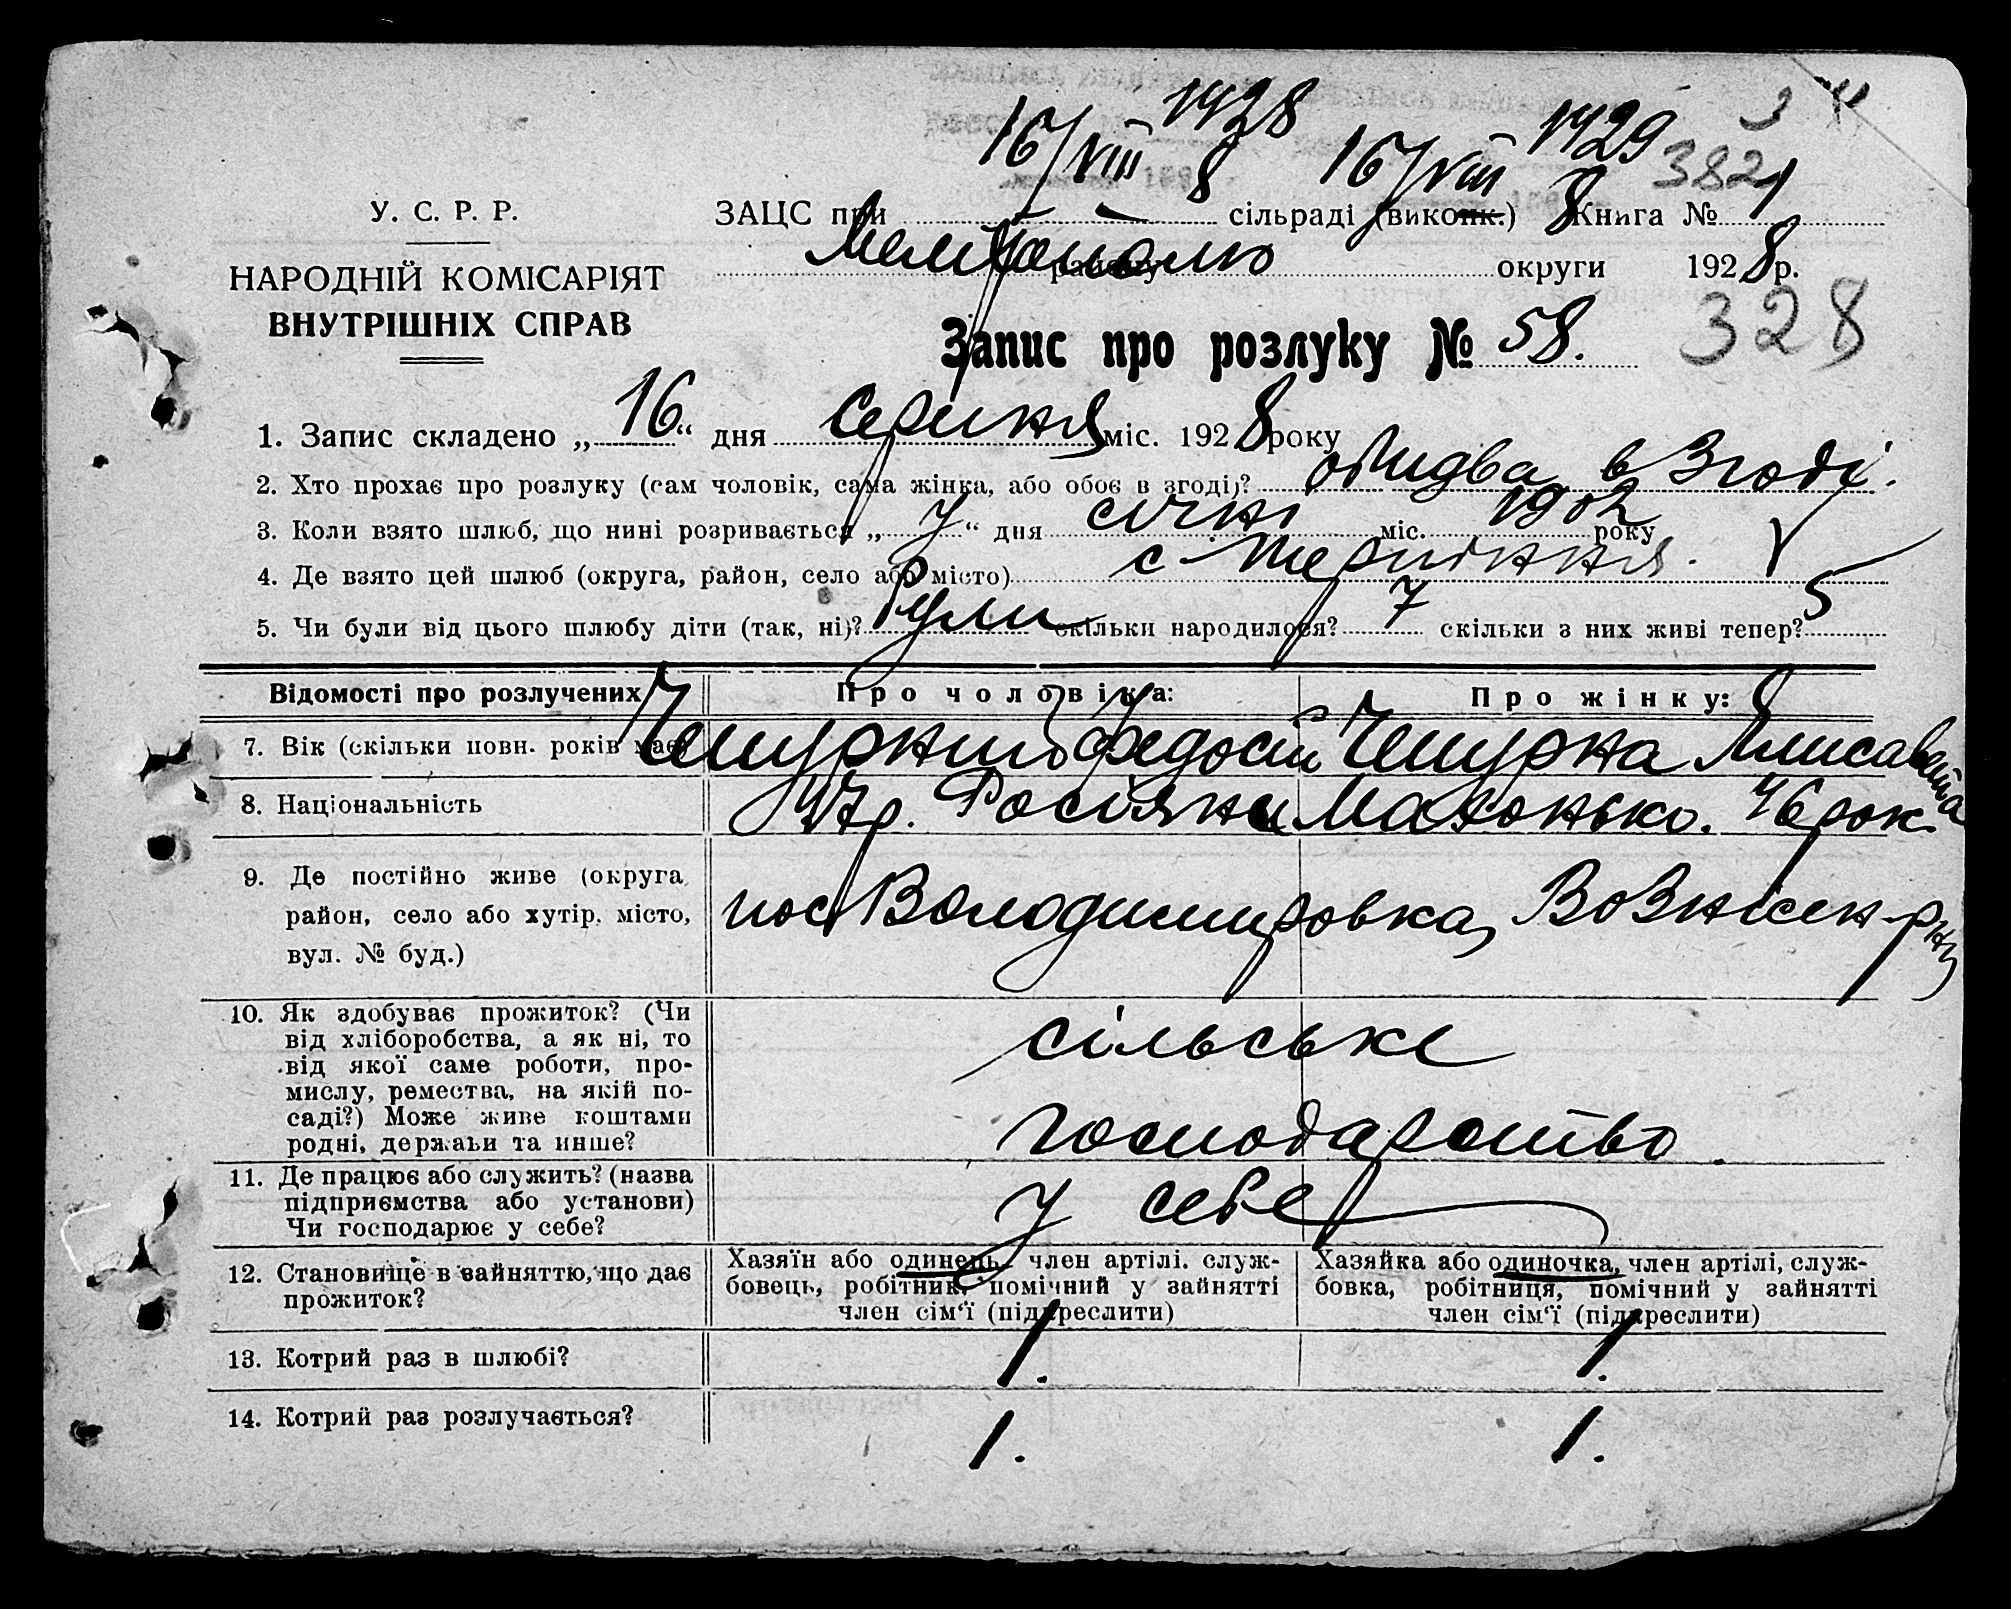 16/VIII 1928 16/VIII 1929
382
У. С. Р. Р.
НАРОДНІЙ КОМІСАРІЯТ
ВНУТРІШНІХ СПРАВ
ЗАЦС при сільраді (виконк.) Книга № 1
Мелітополю району округи 1928 р.
Запис про розлуку № 58.
328
1. Запис складено „16“ дня серпня міс. 1928 року
2. Хто прохає про розлуку (сам чоловік, сама жінка, або обоє в згоді)? обидва в згоді.
3. Коли взято шлюб, що нині розривається „7“ дня січня міс. 1902 року
4. Де взято цей шлюб (округа, район, село або місто) с Терпіння.
5. Чи були від цього шлюбу діти (так, ні)? були скільки народилося? 7 скільки з них живі тепер? 5
Відомості про розлучених Про чоловіка: Про жінку:
7. Вік (скільки повн. років має) Чешурний Федосій Чешурна Єлисавета
8. Національність 47 р. Росіяни Махонько. 46 рок.
9. Де постійно живе (округа, район, село або хутір, місто, вул. № буд.) пос Володимировка, Вознісен. р-ну
10. Як здобуває прожиток? (Чи
від хліборобства, а як ні, то
від якої саме роботи, про-
мислу, ремества, на якій по-
саді?) Може живе коштами
родні, держави та инше?
сільське
господарство.
11. Де працює або служить? (назва
підприємства або установи)
Чи господарює у себе?
у себе
12. Становище в зайняттю, що дає
прожиток?
Хазяїн або одинець, член артілі, служ-
бовець, робітник, помічний у зайнятті
член сім'ї (підкреслити)
Хазяйка або одиночка, член артілі, служ-
бовка, робітниця, помічний у зайнятті
член сім'ї (підкреслити)
13. Котрий раз в шлюбі? 1. 1.
14. Котрий раз розлучається? 1. 1.